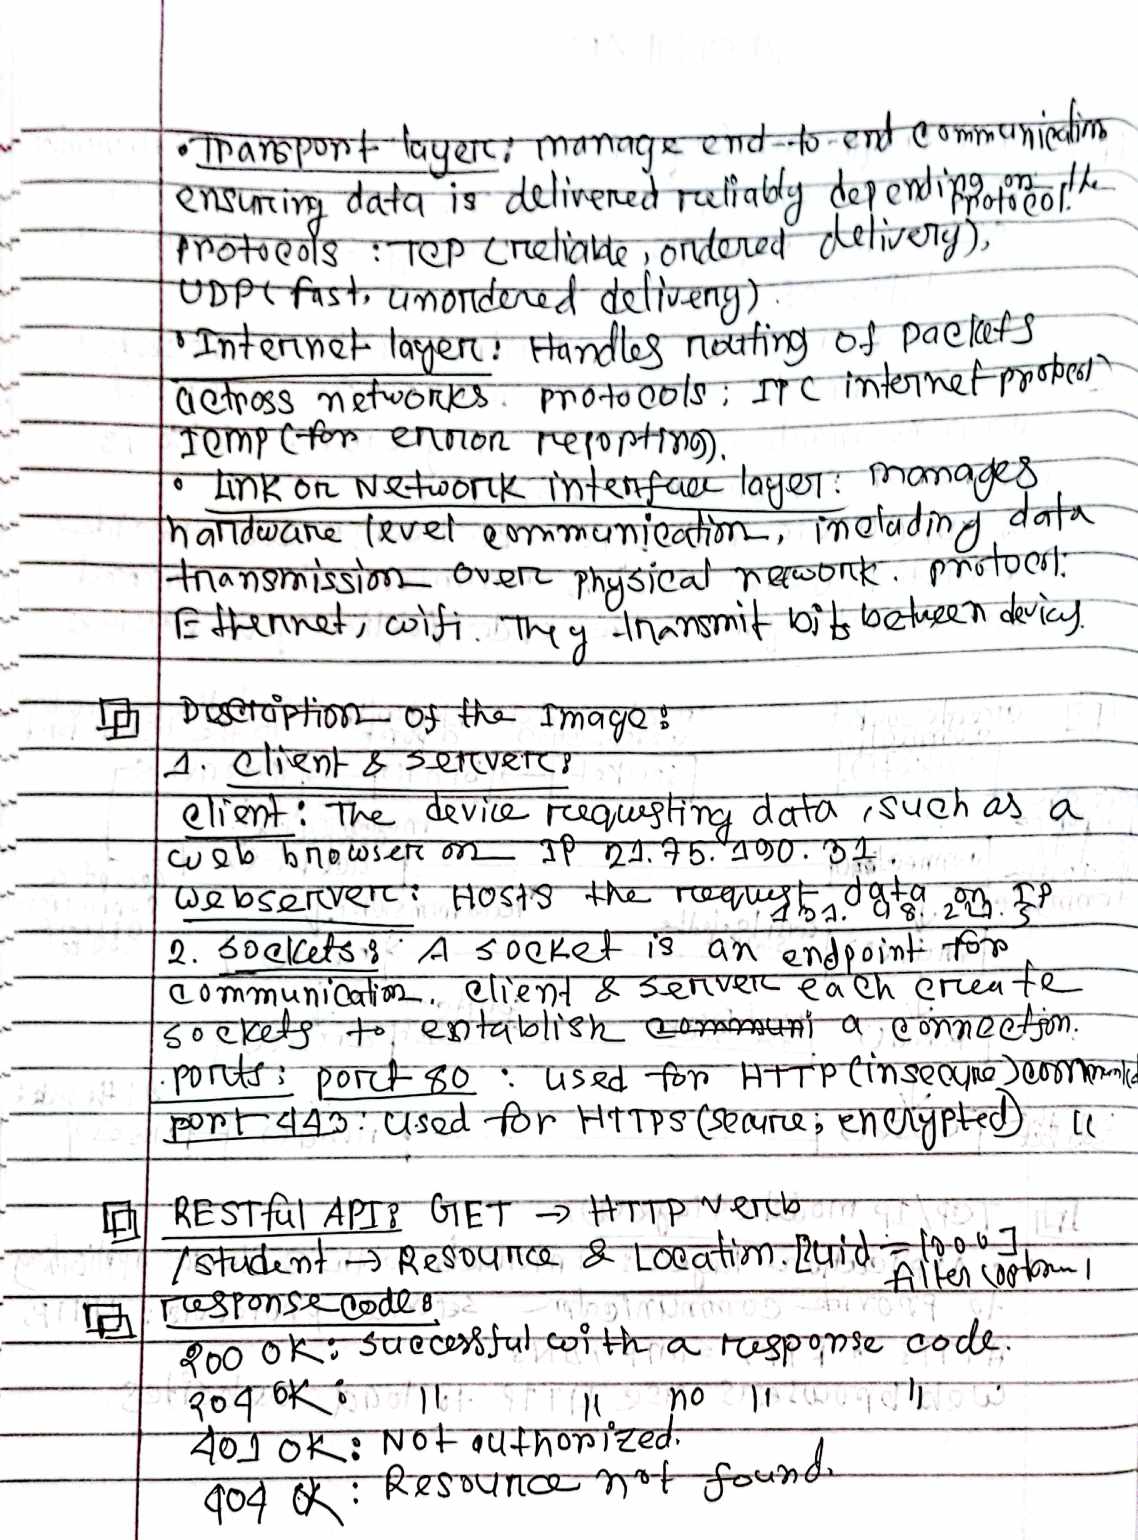 • Transport layer: manage end-to-end communication
ensuring data is delivered reliably depending on the
protocol.
protocols : TCP (reliable, ordered delivery),
UDP (fast, unordered delivery).
• Internet layer: Handles routing of packets
across networks. protocols: IP ( internet protocol
ICMP (for error reporting).
• Link or Network interface layer: manages
hardware level communication, including data
transmission over physical network. protocol:
Ethernet, wifi. They transmit bits between devices.
Description of the Image:
1. Client & server:
Client: The device requesting data, such as a
web browser on IP 21.75.190.31.
Webserver: Hosts the request data on IP
131.98.221.5
2. Sockets: A socket is an endpoint for
communication. Client & server each create
sockets to establish communi a connection.
ports: port 80 : used for HTTP (insecure)
port 443: Used for HTTPS (secure; encrypted) "
RESTful API: GET → HTTP verb
/student → Resource & Location. [?uid = 1000]
filter
response code:
200 OK: Successful with a response code.
204 OK: " " no " "
401 OK: Not authorized.
404 OK: Resource not found.